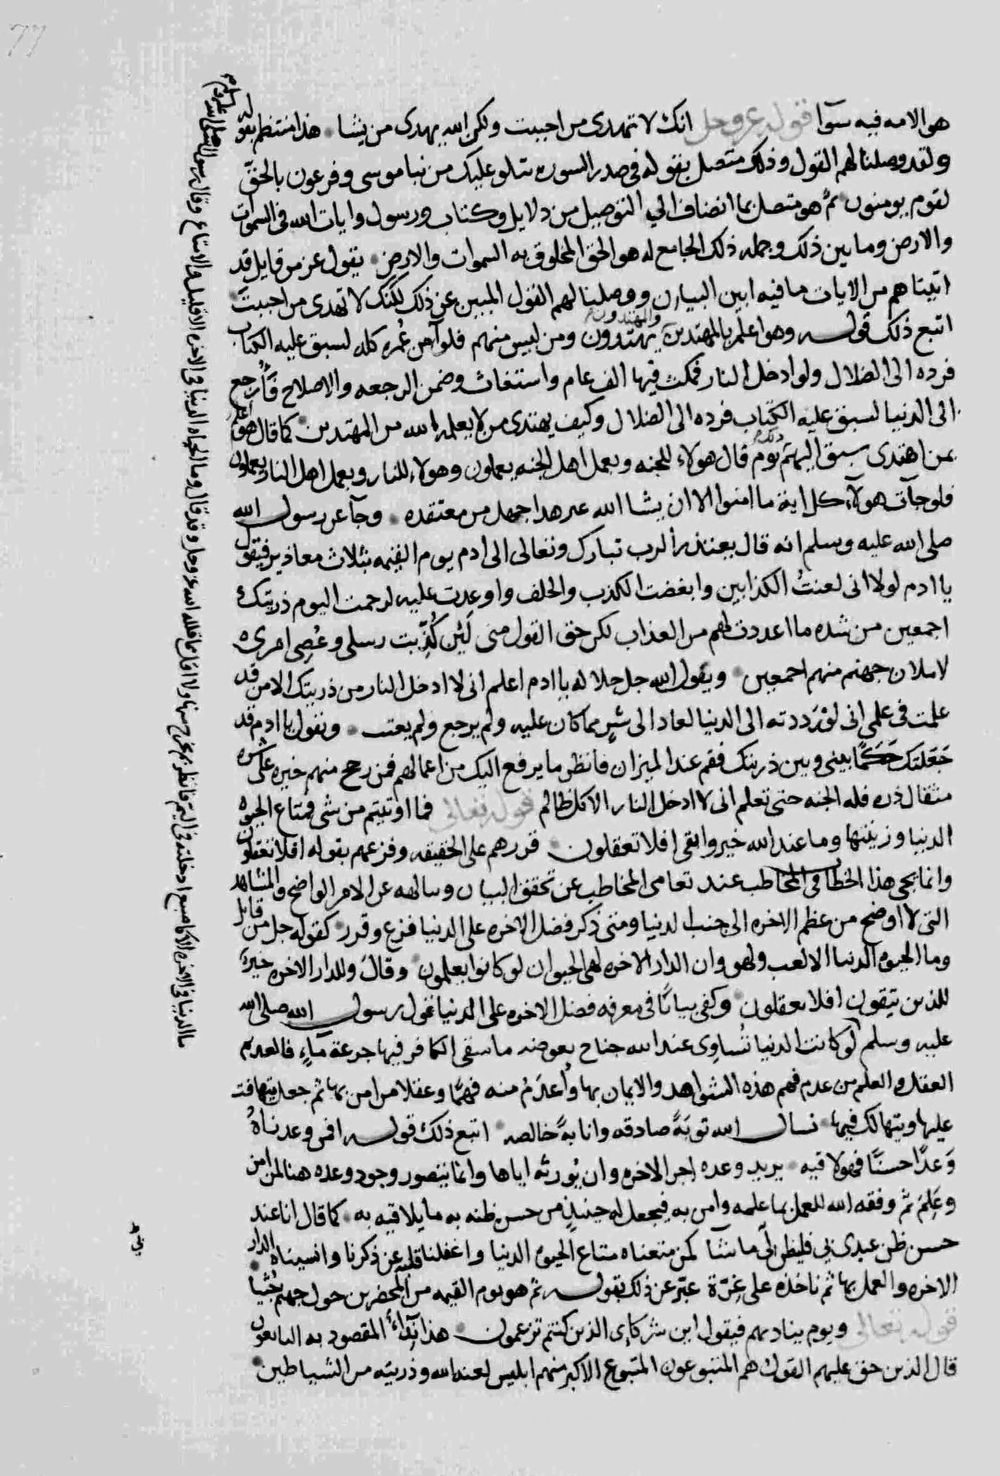 77
هو الامه فيه سوآ قوله عز وجل انك لا تهدى من احببت ولكن الله يهدى من يشا هذا منتظم بقوله
ولقد وصلنا لهم القول وذلك متصل بقوله فى صدر السوره نتلو عليك من نبا موسى وفرعون بالحق
لقوم يومنون ثم هو متصل بما انضاف الى التوصيل من دلايل وكتاب ورسول وايات الله فى السموات
والارض وما بين ذلك وجمله ذلك الجامع له هو الحق المخلوق به السموات والارض يقول عز من قايل قد
اتيناهم من الايات ما فيه ابين البيان ووصلنا لهم القول المبين عن ذلك لكنك لا تهدى من احببت
اتبع ذلك قوله وهو اعلم بالمهتدين ومن ليس منهم فلو آمن عمره كله لسبق عليه الكتاب
فرده الى الضلال ولو ادخل النار فمكث فيها الف عام واستغاث وضمن الرجعه والاصلاح فارجع
الى الدنيا لسبق عليه الكتاب فرده الى الضلال وكيف يهتدى من لا يعلمه الله من المهتدين كما قال هو اعلم
بمن اهتدى سبق اليهم يوم قال هولاء للجنه وبعمل اهل الجنه يعملون وهولاء للنار وبعمل اهل النار يعملون
فلو جآت هولآء كل اية ما امنوا الا ان يشا الله غير هدا جهل من معتقده وجآ عن رسول الله
صلى الله عليه وسلم انه قال يعتذر الرب تبارك وتعالى الى ادم يوم القيمه بثلاث معاذير فيقول
يا ادم لولا انى لعنت الكذابين وابغضت الكذب والخلف واوعدت عليه لرحمت اليوم ذريتك
اجمعين من شده ما اعددت لهم من العذاب لكن حق القول منى لئن كُذّبت رسلى وعُصى امرى
لاملان جهنم منهم اجمعين ويقول الله جل جلاله يا ادم اعلم انى لا ادخل النار من ذريتك الا من قد
علمت فى علمى انى لو رددته الى الدنيا لعاد الى شر مما كان عليه ولم يرجع ولم يعتب ويقول يا ادم قد
جعلتك حَكَمًا بينى وبين ذريتك فقم عند الميزان فانظر ما يرفع اليك من اعمالهم فمن رجح منهم خيره على شره
مثقال ذره فله الجنه حتى تعلم انى لا ادخل النار الا كل ظالم قوله تعالى فما اوتيتم من شى فمتاع الحيوه
الدنيا وزينتها وما عند الله خير وابقى افلا تعقلون قررهم على الحقيقه وقرعهم بقوله افلا تعقلون
وانما يجى هذا الخطاب فى المخاطب عند تعامى المخاطب عن تحقق البيان وسالهه عن الامر الواضح والمشاهد
التى لا اوضح من عظم الاخره الى جنب الدنيا ومتى ذكر فضل الاخره على الدنيا قرع وقرر كقوله جل من قايل
وما الحيوه الدنيا الا لعب ولهو وان الدار الاخره لهى الحيوان لو كانوا يعلمون وقال وللدار الاخره خير
للذين يتقون افلا تعقلون وكفى بيانًا فى معرفه فضل الاخره على الدنيا قول رسول الله صلى الله
عليه وسلم لو كانت الدنيا تُساوى عند الله جناح بعوضه ما سقى الكافر فيها جرعة مآء فالعديم
العقل والعلم من عدم فهم هذه الشواهد والايمان بها واعدَمُ منه فهمًا وعقلا من امن بها ثم جعل يتهافت
عليها ويتهالك فيها نسال الله توبةً صادقه وانابهً خالصه اتبع ذلك قوله افمن وعدناهُ
وَعدًا حسنًا فهو لاقيه يريد وعده اجر الاخره وان يُورثه اياها وانما يتصور وجود وعده هنا لمن امن
وعَلِمَ ثم وفقه الله للعمل بما علمه وامن به فيجعل له حينئذٍ من حسن ظنه به ما يلاقيه به كما قال انا عند
حسن ظن عبدى بى فليظن بى ما شآ كمن متعناه متاع الحيوه الدنيا واغفلنا قلبه عن ذكرنا وانسيناه الدار
الاخره والعمل بها ثم ناخذه على غِرّة عبّر عن ذلك بقوله ثم هو يوم القيمه من المحضرين حول جهنم جُثيا
قوله تعالى ويوم يناديهم فيقول اين شركاى الذين كنتم تزعمون هذا نداء المقصود به التابعون
قال الذين حق عليهم القول هم المتبوعون المتبوع الاكبر منهم ابليس لعنه الله وذريته من الشياطين